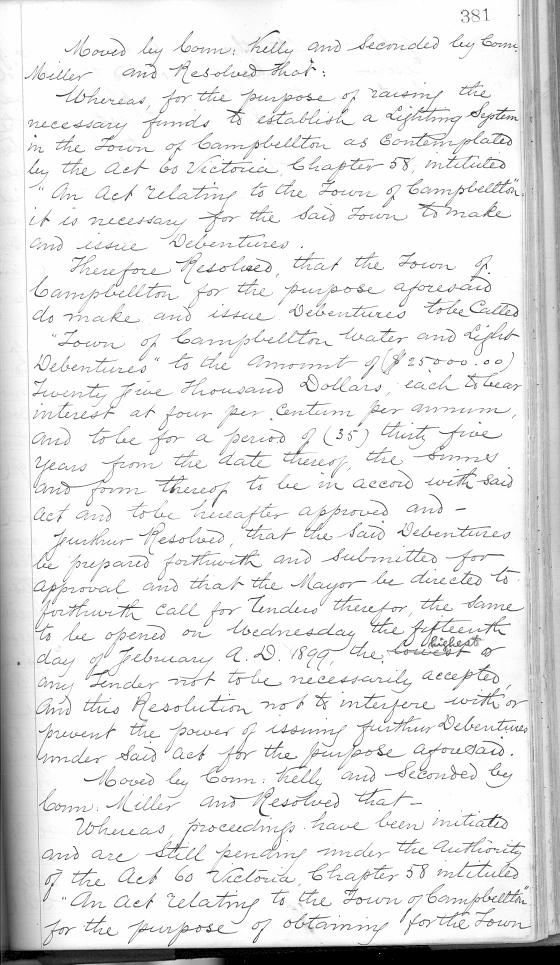 381
Moved by Coun: Kelly and Seconded by Coun:
Miller and Resolved that:
Whereas, for the purpose of raising the
necessary funds to establish a Lighting System
in the Town of Campbellton as Contemplated
by the Act 60 Victoria, Chapter 58, intituled
"An Act relating to the Town of Campbellton"
it is necessary for the said Town to make
and issue Debentures.
Therefore Resolved, that the Town of
Campbellton for the purpose aforesaid
do make and issue Debentures to be Called
"Town of Campbellton Water and Light
Debentures" to the amount of ($25000.00)
Twenty Five Thousand Dollars, each to bear
interest at four per centum per annum,
and to be for a period of (35) thirty five
years from the date thereof, the sums
and form thereof to be in accord with said
Act and to be hereafter approved and -
Further Resolved, that the Said Debentures
be prepared forthwith and submitted for
approval and that the Mayor be directed to
forthwith call for Tenders therefor, the same
to be opened on Wednesday the fifteenth
day of February A.D. 1899, the lowest highest or
any Tender not to be necessarily accepted
and this Resolution not to interfere with or
prevent the power of issuing further Debentures
under Said Act for the purpose aforesaid.
Moved by Coun: Kelly and Seconded by
Coun: Miller and Resolved that -
Whereas, proceedings have been initiated
and are still pending under the authority
of the Act 60 Victoria, Chapter 58 intituled
"An Act relating to the Town of Campbellton"
for the purpose of obtaining for the Town